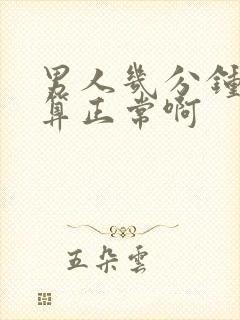 男人幾分鐘
算正常啊
五朵雲